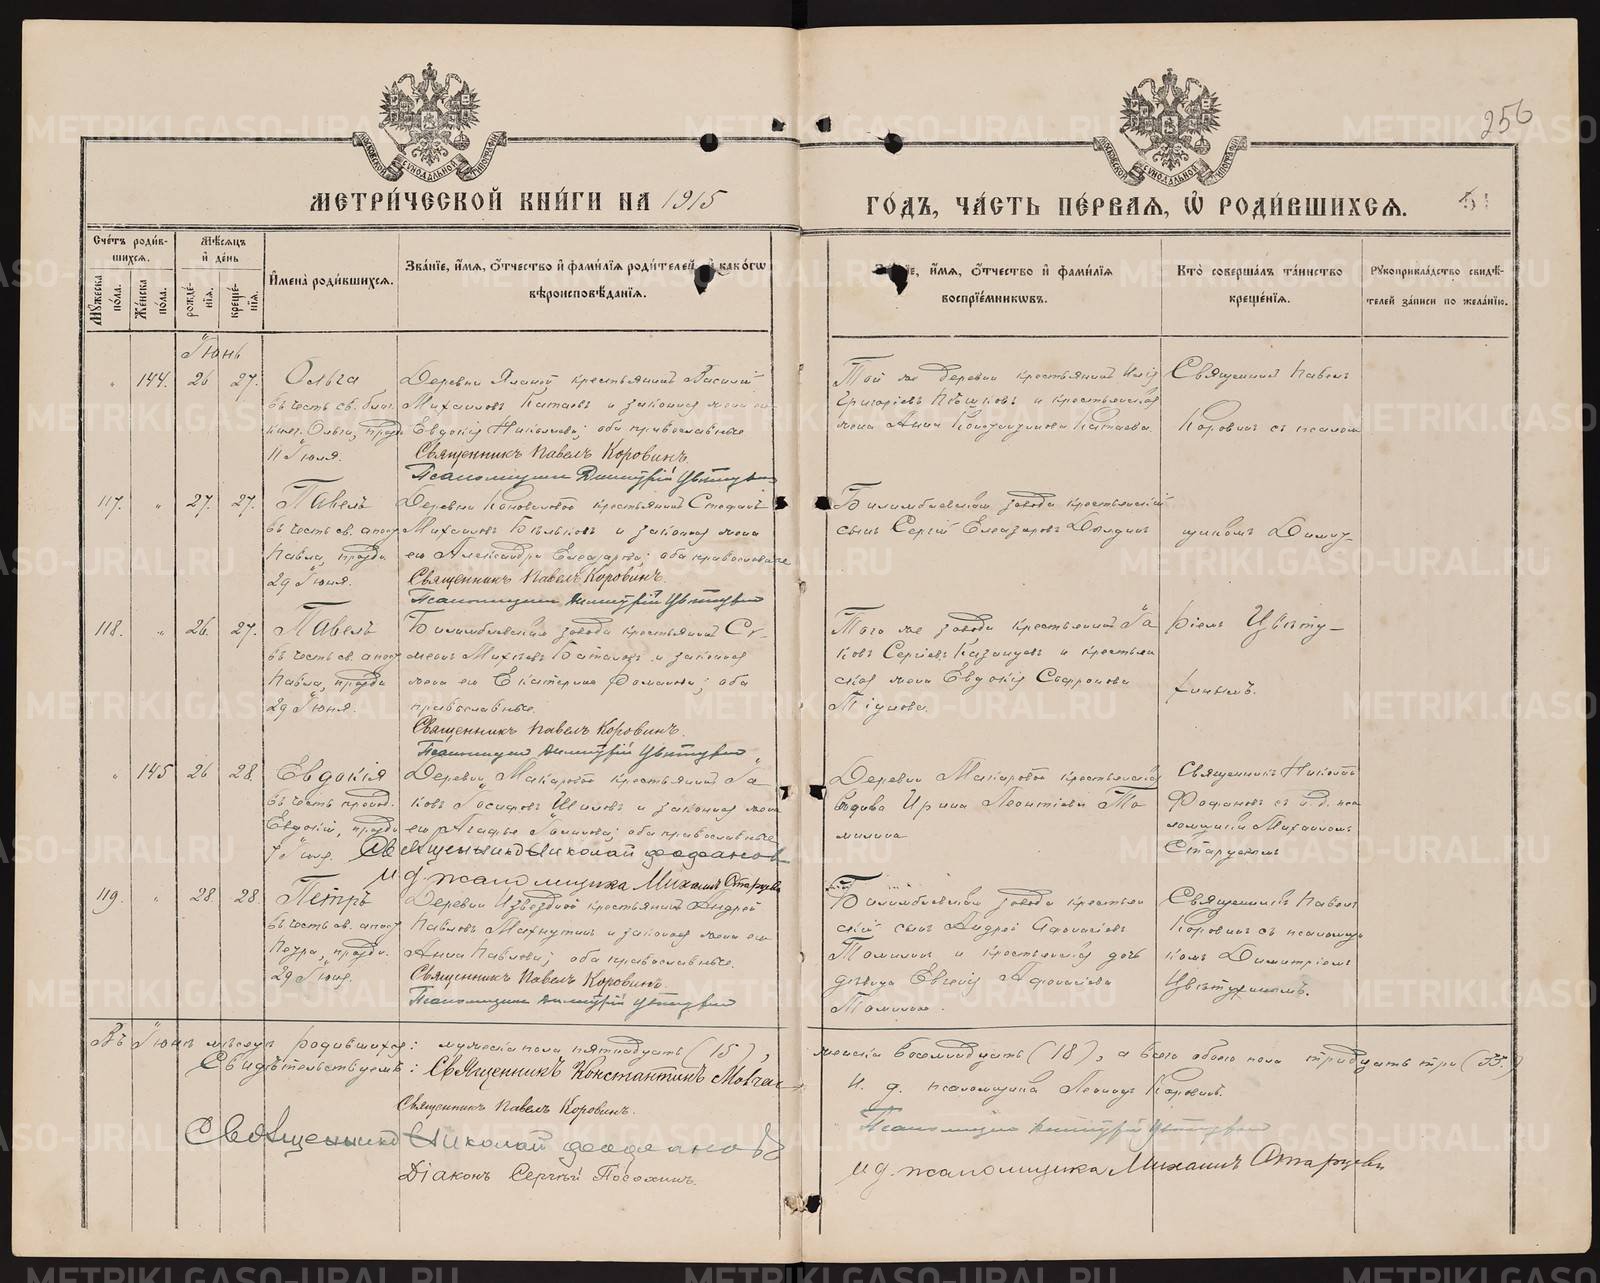 256
МЕТРИ́ЧЕСКОЙ КНИ́ГИ НА 1915
ГО́ДЪ, ЧА́СТЬ ПЕ́РВАЯ, Ѡ҆ РОДИ́ВШИХСЯ.
51
Сче́тъ роди́в-
шихся.
Мѣ́сяцъ
и҆ де́нь
Мꙋ́жеска по́ла.
Же́нска по́ла.
рожде́нїя.
креще́нїя.
И҆мена̀ роди́вшихся.
Зва́нїе, и҆́мя, ѻ҆́тчество и҆ фами́лїя роди́телей, и҆ како́гѡ
вѣроисповѣ́данїя.
Зва́нїе, и҆́мя, ѻ҆́тчество и҆ фами́лїя
воспрїе́мниковъ.
Кто̀ соверша́лъ та́инство
креще́нїя.
Рꙋкоприкла́дство свидѣ́-
телей за́писи по жела́нїю.
Іюнь
" 144. 26 27. Ольга
въ честь св. благ.
княг. Ольги, празд.
11 Іюля.
крестьянинъ Василій
Михаиловъ Катаевъ и законная жена его
Евдокія Николаева; оба православные
Священникъ Павелъ Коровинъ.
Псаломщикъ Димитрій Цвѣтухинъ
Той же деревни крестьянинъ Илія
Григоріевъ и крестьянская
жена Анна Катаева.
Священникъ Павелъ
Коровинъ съ псалом
117. " 27. 27. Павелъ
въ честь св. апост.
Павла, праздн.
29 Іюня.
Деревни Коноваловой крестьянинъ Стефанъ
Михаиловъ Бѣльковъ и законная жена
его Александра Елеазарова; оба православные
Священникъ Павелъ Коровинъ.
Псаломщикъ Димитрій Цвѣтухинъ
Билимбаевскаго завода крестьянскій
сынъ Сергій Елеазаровъ
щикомъ Димит
118. " 26. 27. Павелъ
въ честь св. апост.
Павла, праздн.
29 Іюня.
Билимбаевскаго завода крестьянинъ Се-
менъ и законная
жена его Екатерина; оба
православные.
Священникъ Павелъ Коровинъ.
Псаломщикъ Димитрій Цвѣтухинъ
Того же завода крестьянинъ Іа
ковъ Сергіевъ Казанцевъ и крестьян
ская жена Евдокія Сафронова
ріемъ Цвѣту-
хинымъ.
" 145 26 28. Евдокія
въ честь препод.
Евдокіи, праздн.
7 Іюля.
Деревни Макаровой крестьянинъ Іа
ковъ Іосифовъ Шиловъ и законная жена
его Агафья; оба православные
Священникъ Николай Феофановъ
И д. псаломщика Михаилъ Старцевъ
Деревни Макаровой крестьянская
вдова Ирина Леонтіева То
милина
Священникъ Николай
Феофановъ съ и. д. пса
ломщика Михаиломъ
Старцевымъ
119. " 28. 28. Петръ
въ честь св. апост.
Петра, праздн.
29 Іюня.
Деревни Извездной крестьянинъ Андрей
Павловъ Махнуткинъ и законная жена его
Анна Павлова; оба православные.
Священникъ Павелъ Коровинъ.
Псаломщикъ Димитрій Цвѣтухинъ
Билимбаевскаго завода крестьян
скій сынъ Андрей
Томилинъ и крестьянская дочь
дѣвица Евгенія
Томилина.
Священникъ Павелъ
Коровинъ съ псаломщи
комъ Димитріемъ
Цвѣтухинымъ.
Въ Іюнѣ мѣсяцѣ родившихся: мужеска пола пятнадцать (15), женска восемнадцать (18), а всего обоего пола тридцать три (33.)
Свидѣтельствуемъ: Священникъ Константинъ
И. д. псаломщика Леонидъ Коровинъ.
Священникъ Павелъ Коровинъ.
Псаломщикъ Димитрій Цвѣтухинъ
Священникъ Николай Феофановъ
И д. псаломщика Михаилъ Старцевъ
Діаконъ Сергѣй
METRIKI.GASO-URAL.RU